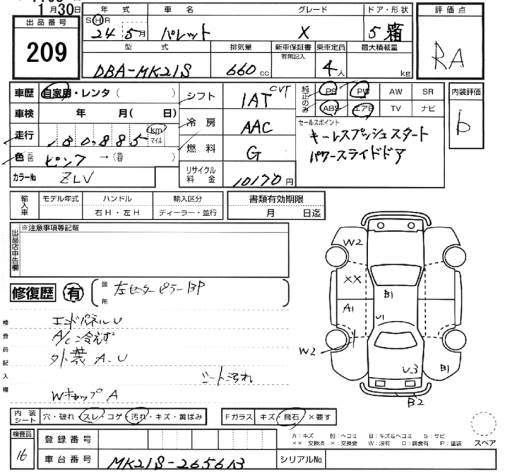 月30日
出品番号
209
年式 車名 グレード ドア・形状 評価点
S H R 24年5月 パレット X 5 箱
型式 排気量 新車保証書 有無記入 乗車定員 最大積載量
DBA-MK21S 660cc 4人 kg RA
車歴 自家用・レンタ( )
シフト IAT CVT
純正のみ PS PW AW SR
ABS エアB TV ナビ
内装評価
b
車検 年 月( 日)
冷房 AAC
セールスポイント
キーレスプッシュスタート
パワースライドドア
走行 180,885 km マイル
燃料 G
色 ピンク →( )
カラーNo ZLV
リサイクル料金 10170円
輸入車 モデル年式 ハンドル 輸入区分 書類有効期限
右H・左H ディーラー・並行 月 日迄
出品店申告欄
※注意事項等記載
修復歴 有 箇所 左センターピラーBP
検査員記入欄
エンドパネルU
A/C冷えず
外装 A、U
シート汚れ
WキャップA
W2
XX
B1
A1
U1
W2
U3
B2
スペア
内装シート 穴・破れ・スレ・コゲ・汚れ・キズ・黄ばみ
Fガラス キズ・飛石・×要す
A:キズ B:キズ&ヘコミ S:サビ
検査員
16
登録番号
車台番号 MK21S-265613 シリアルNo